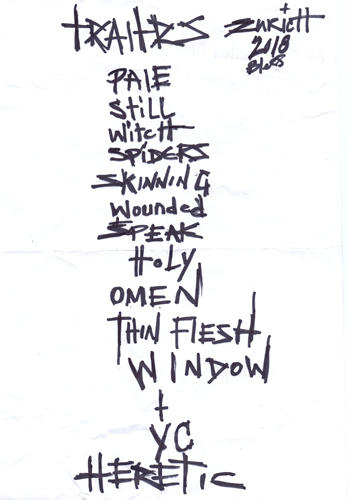 TRAITRS
ZURICH
2018
PALE
STiLL
WiTCH
SPIDERS
SKINNING
Wounded
SPEAK
HOLY
OMEN
THIN FLESH
WINDOW
+
YC
HERETIC